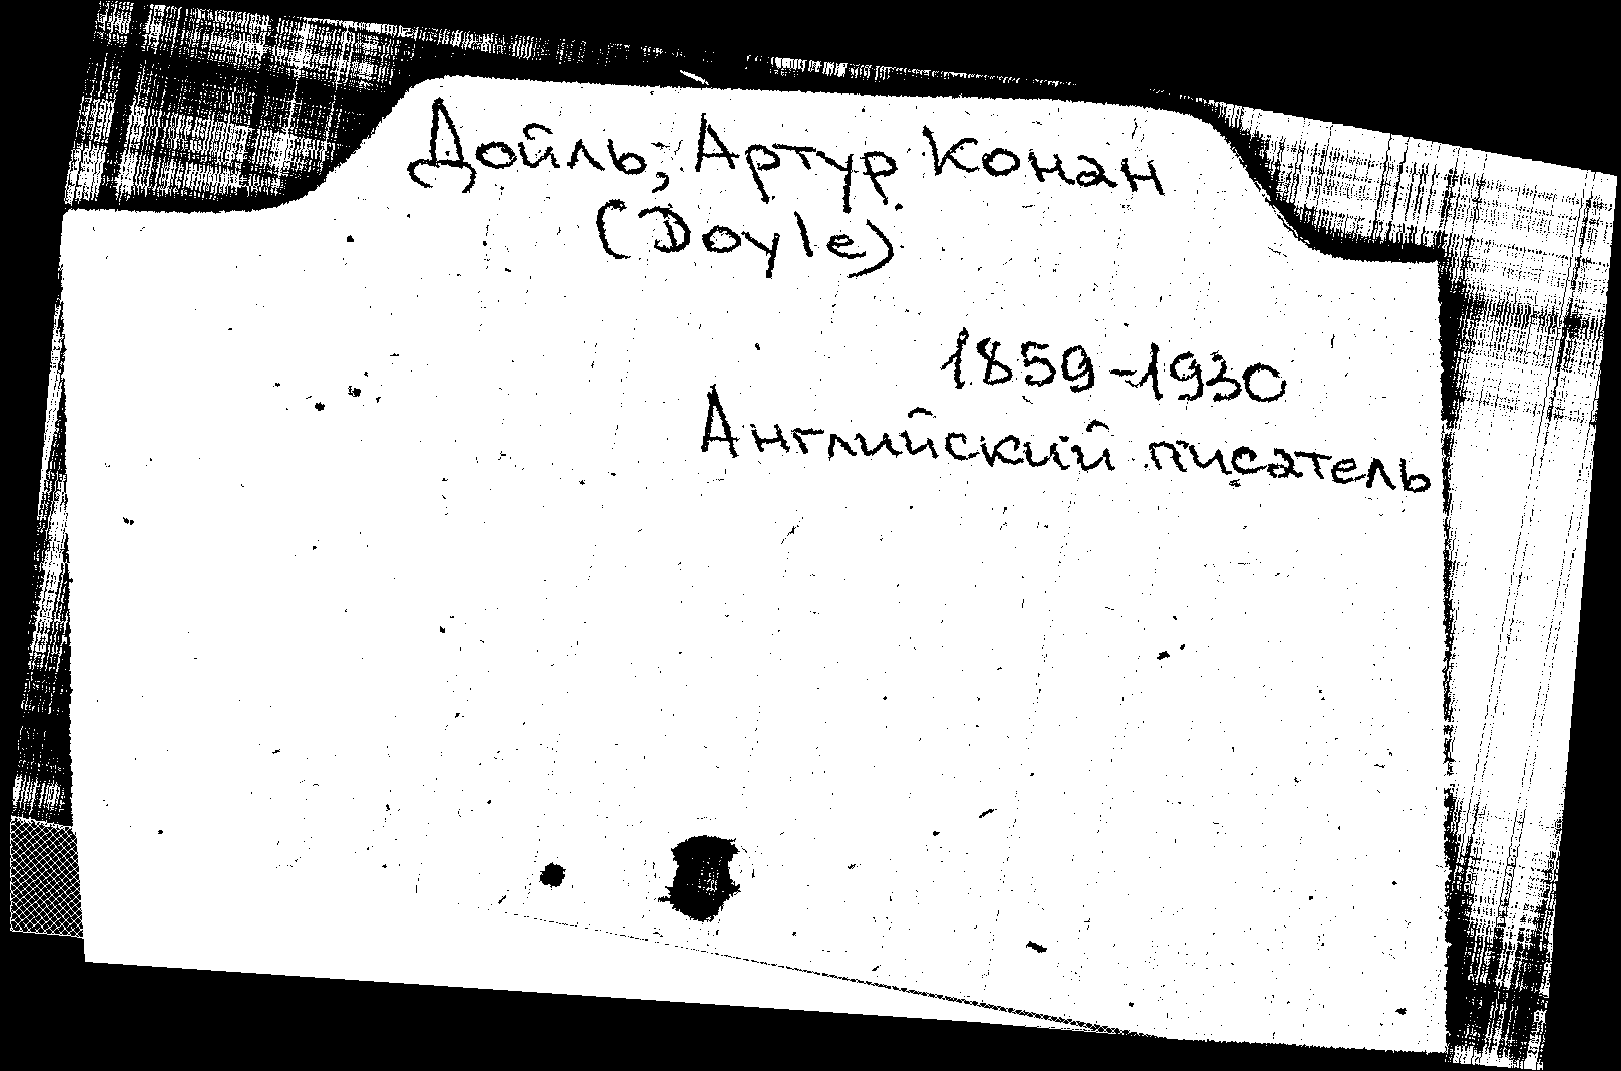 Дойль, Артур Конан
(Doyle)
1859-1930
Английский писатель